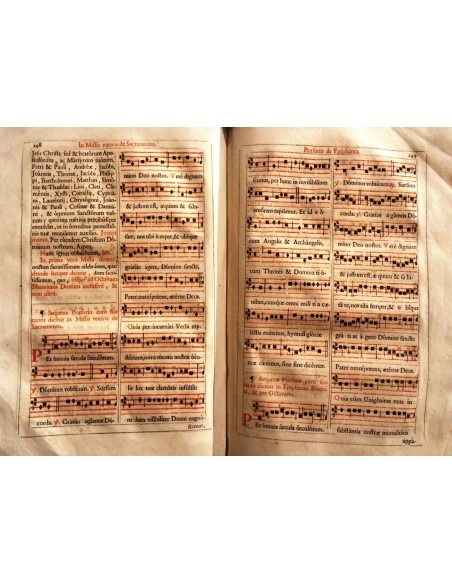 248 In Missa votiva de Sacramento.
Jesu Christi: sed & beatórum Apo-
stolórum, ac Mártyrum tuórum,
Petri & Pauli, Andréæ, Jacóbi,
Joánnis, Thomæ, Jacóbi, Philíp-
pi, Bartholomǽi, Matthǽi, Simó-
nis & Thaddǽi: Lini, Cleti, Cle-
méntis, Xysti, Cornélij, Cypriá-
ni, Lauréntij, Chrysógoni, Joán-
nis & Pauli, Cosmæ & Damiá-
ni, & ómnium Sanctórum tuó-
rum, quorum méritis precibúsque
concédas, ut in ómnibus protectió-
nis tuæ muniámur auxílio.
Per eúndem Christum Dó-
minum nostrum. Amen.
Hanc ígitur oblatiónem, &c.
¶ Séquens Præfatio cum suo
cantu dicitur in Missa votiva de
Sacramento.
PEr ómnia sæcula sæculórum.
Dóminus vobíscum. ℣. Sursum
corda. ℣. Grátias agámus Dó-
mino Deo nostro. Veré dignum
& justum est, æquum & salu-
táre, nos tibi semper, & ubíque
grátias ágere, Dómine sancte,
Pater omnípotens, ætérne Deus.
Quia per incarnáti Verbi my-
stérium, nova mentis nostræ ócu-
lis lux tuæ claritátis infúlsit:
ut dum visibíliter Deum cognó-
scimus,
Præfatio de Epiphania. 249
scimus, per hunc in invisibílium
amórem rapiámur. Et ídeo
cum Angelis & Archángelis,
cum Thronis & Dominatió-
nibus, cumque omni milítia cæ-
léstis exércitus, hymnum glóriæ
tuæ cánimus, sine fine dicéntes.
¶ Sequens Præfatio, cum suo
cantu dicitur in Epiphania Dómini,
& per Octavam.
PEr ómnia sæcula sæculórum.
Dóminus vobíscum. ℣. Sursum
corda. ℣. Grátias agámus Dó-
mino Deo nostro. Veré dignum
& justum est, æquum & salu-
táre, nos tibi semper, & ubíque
grátias ágere: Dómine sancte
Pater omnípotens, ætérne Deus.
Quia cum Unigénitus tuus in
substántia nostræ mortalitátis
appá-